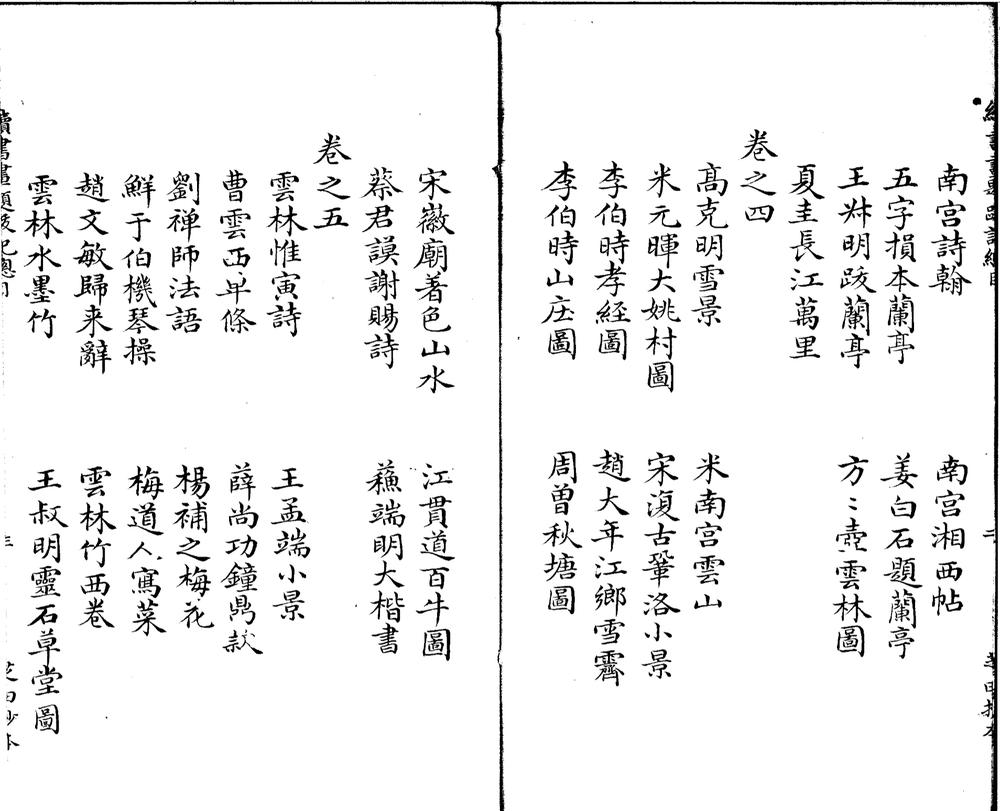 南宫詩翰　南宫湘西帖
五字損本蘭亭　姜白石題蘭亭
王叔明跋蘭亭　方〻壺雲林圖
夏圭長江萬里
卷之四
髙克明雪景　米南宫雲山
米元暉大姚村圖　宋復古鞏洛小景
李伯時孝經圖　趙大年江鄉雪霽
李伯時山庄圖　周曽秋塘圖
宋徽廟著色山水　江貫道百牛圖
蔡君謨謝賜詩　蘓端明大楷書
卷之五
雲林惟寅詩　王孟端小景
曹雲西单條　薛尚功鐘鼎款
劉禅師法語　楊補之梅花
鮮于伯機琴操　梅道人寫菜
趙文敏歸来辭　雲林竹西卷
雲林水墨竹　王叔明靈石草堂圖
續書畫題跋記總目